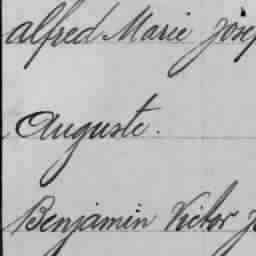 Alfred Marie Josep
Auguste.
Benjamin Victor J